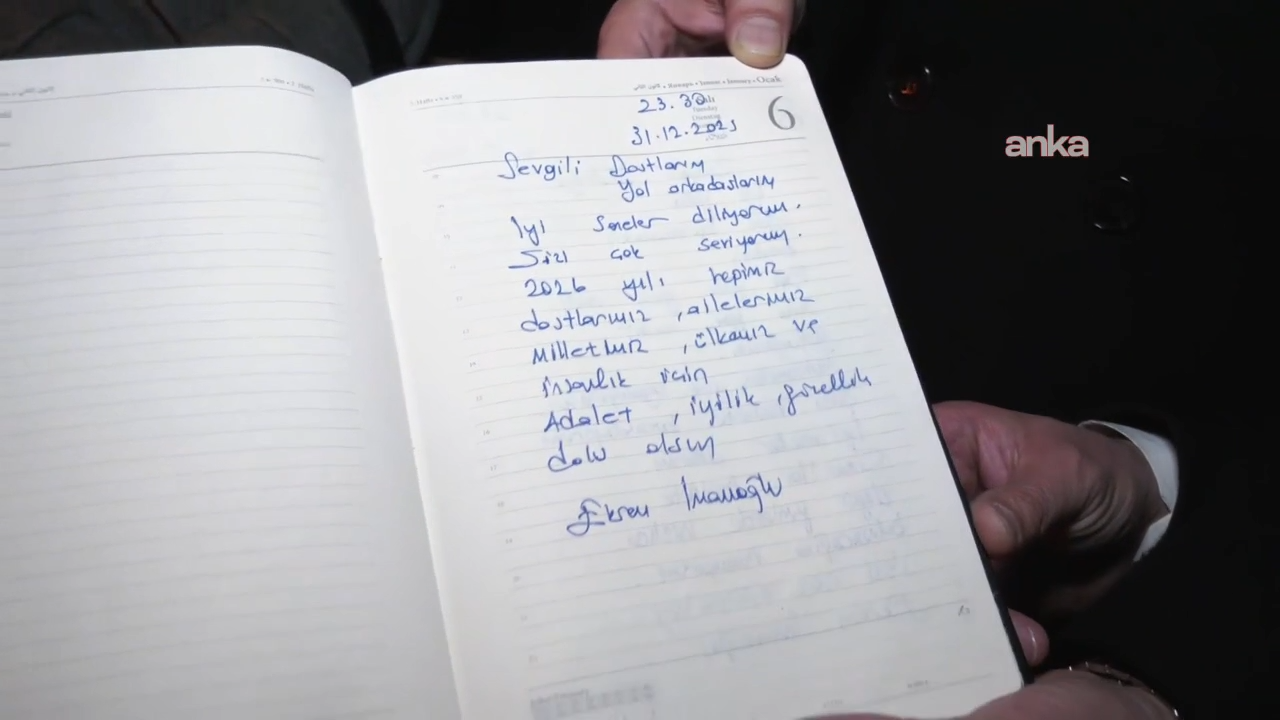 Ocak
6
23.30
31.12.2025
Sevgili Dostlarım
Yol arkadaşlarım
İyi seneler diliyorum.
Sizi çok seviyorum.
2026 yılı hepimiz
dostlarımız, ailelerimiz
Milletimiz, ülkemiz ve
insanlık için
Adalet, iyilik, güzellik
dolu olsun
Ekrem İmamoğlu
anka